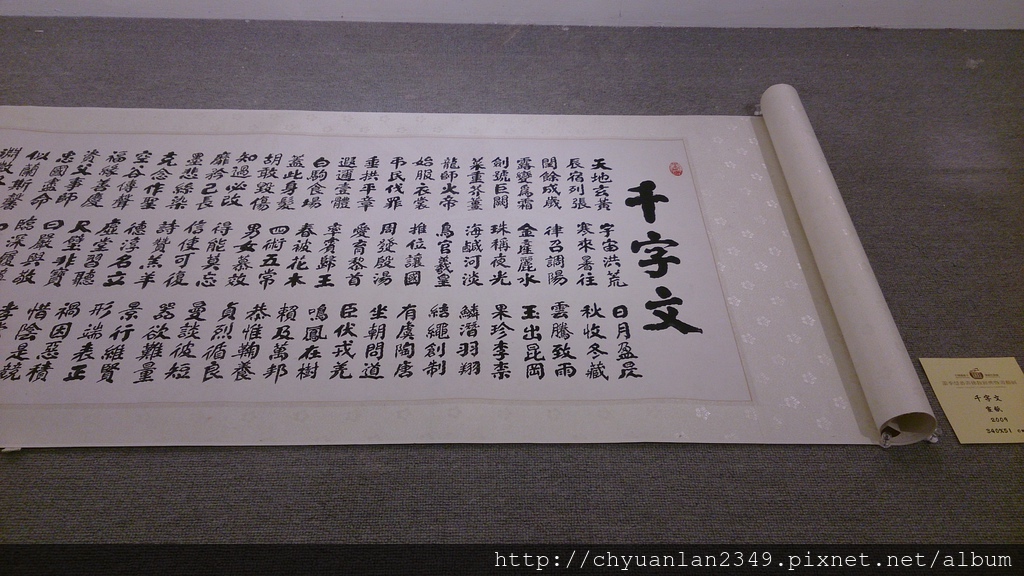 千字文
天地玄黃 宇宙洪荒 日月盈昃
辰宿列張 寒來暑往 秋收冬藏
閏餘成歲 律召調陽 雲騰致雨
露變為霜 金產麗水 玉出昆岡
劍號巨闕 珠稱夜光 果珍李柰
菜重芥薑 海鹹河淡 鱗潛羽翔
龍師火帝 鳥官羲皇 結繩創制
始服衣裳 推位讓國 有虞陶唐
弔民伐罪 周發殷湯 坐朝問道
垂拱平章 愛育黎首 臣伏戎羌
遐邇壹體 率賓歸王 鳴鳳在樹
白駒食場 春被花木 賴及萬邦
蓋此身髮 四術五常 恭惟鞠養
胡敢毀傷 男女慕效 貞烈循良
知過必改 得能莫忘 曼談彼短
靡矜己長 信使可復 器欲難量
墨悲絲染 詩贊羔羊 景行維賢
克念作聖 德淳名立 形端表正
空谷傳聲 虛堂習聽 禍因惡積
福緣善慶 尺璧非寶 惜陰是競
資父事師 曰嚴與敬 孝
忠國盡命 臨深履
似蘭斯馨
千字文
宣紙
2009
240X51
http://chyuanlan2349.pixnet.net/album